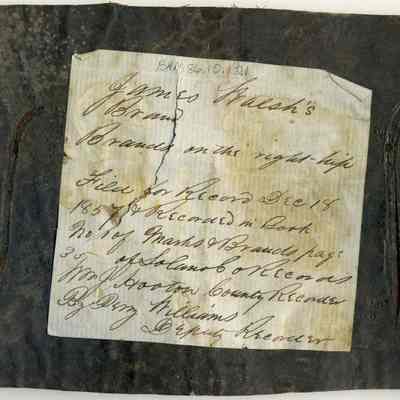 James Walsh's
Brand
Brands on the right hip
Filed for Record Dec 18
1857 & Recorded in Book
No 1 of Marks & Brands page
30 of Solano Co Records
Wm J Hooton County Recorder
By Perry Williams
Deputy Recorder